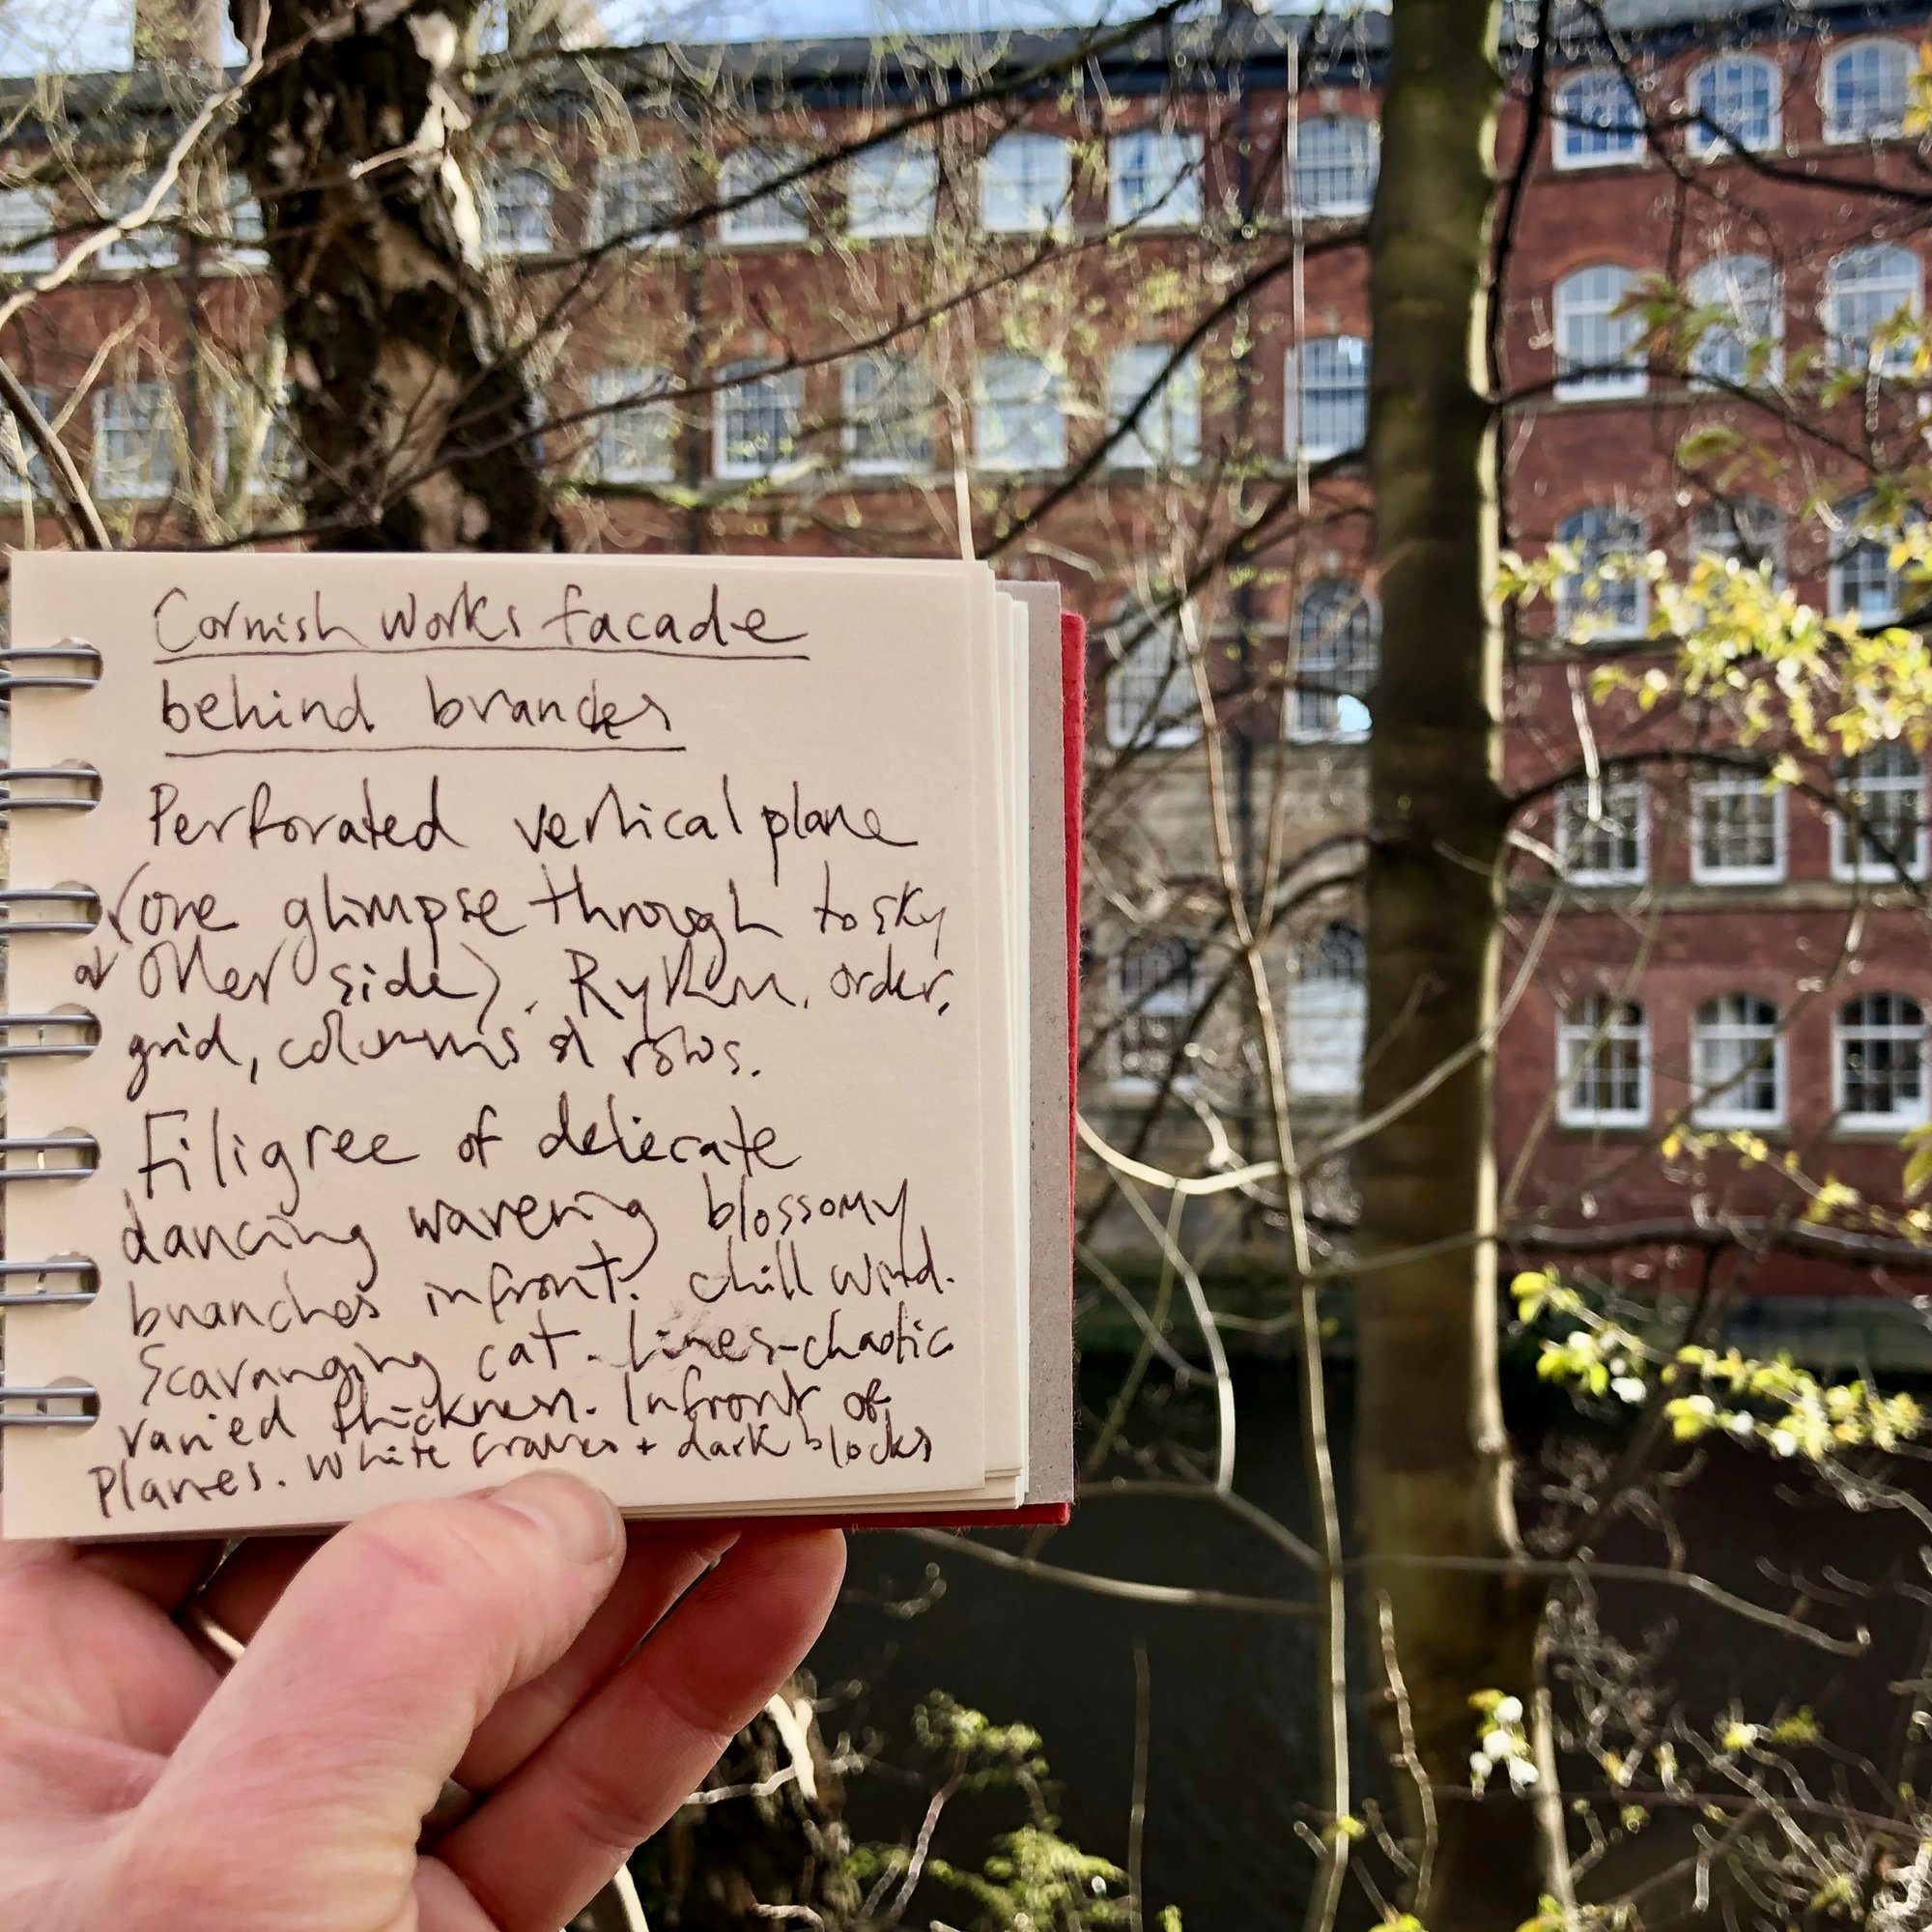 Cornish works facade
behind branches
Perforated vertical plane
(one glimpse through to sky
at other side). Rythm, order,
grid, columns & rows.
Filigree of delicate
dancing wavering blossomy
branches infront. Chill wind.
Scavanging cat. Lines-chaotic
varied thickness. Infront of
Planes. White frames + dark blocks